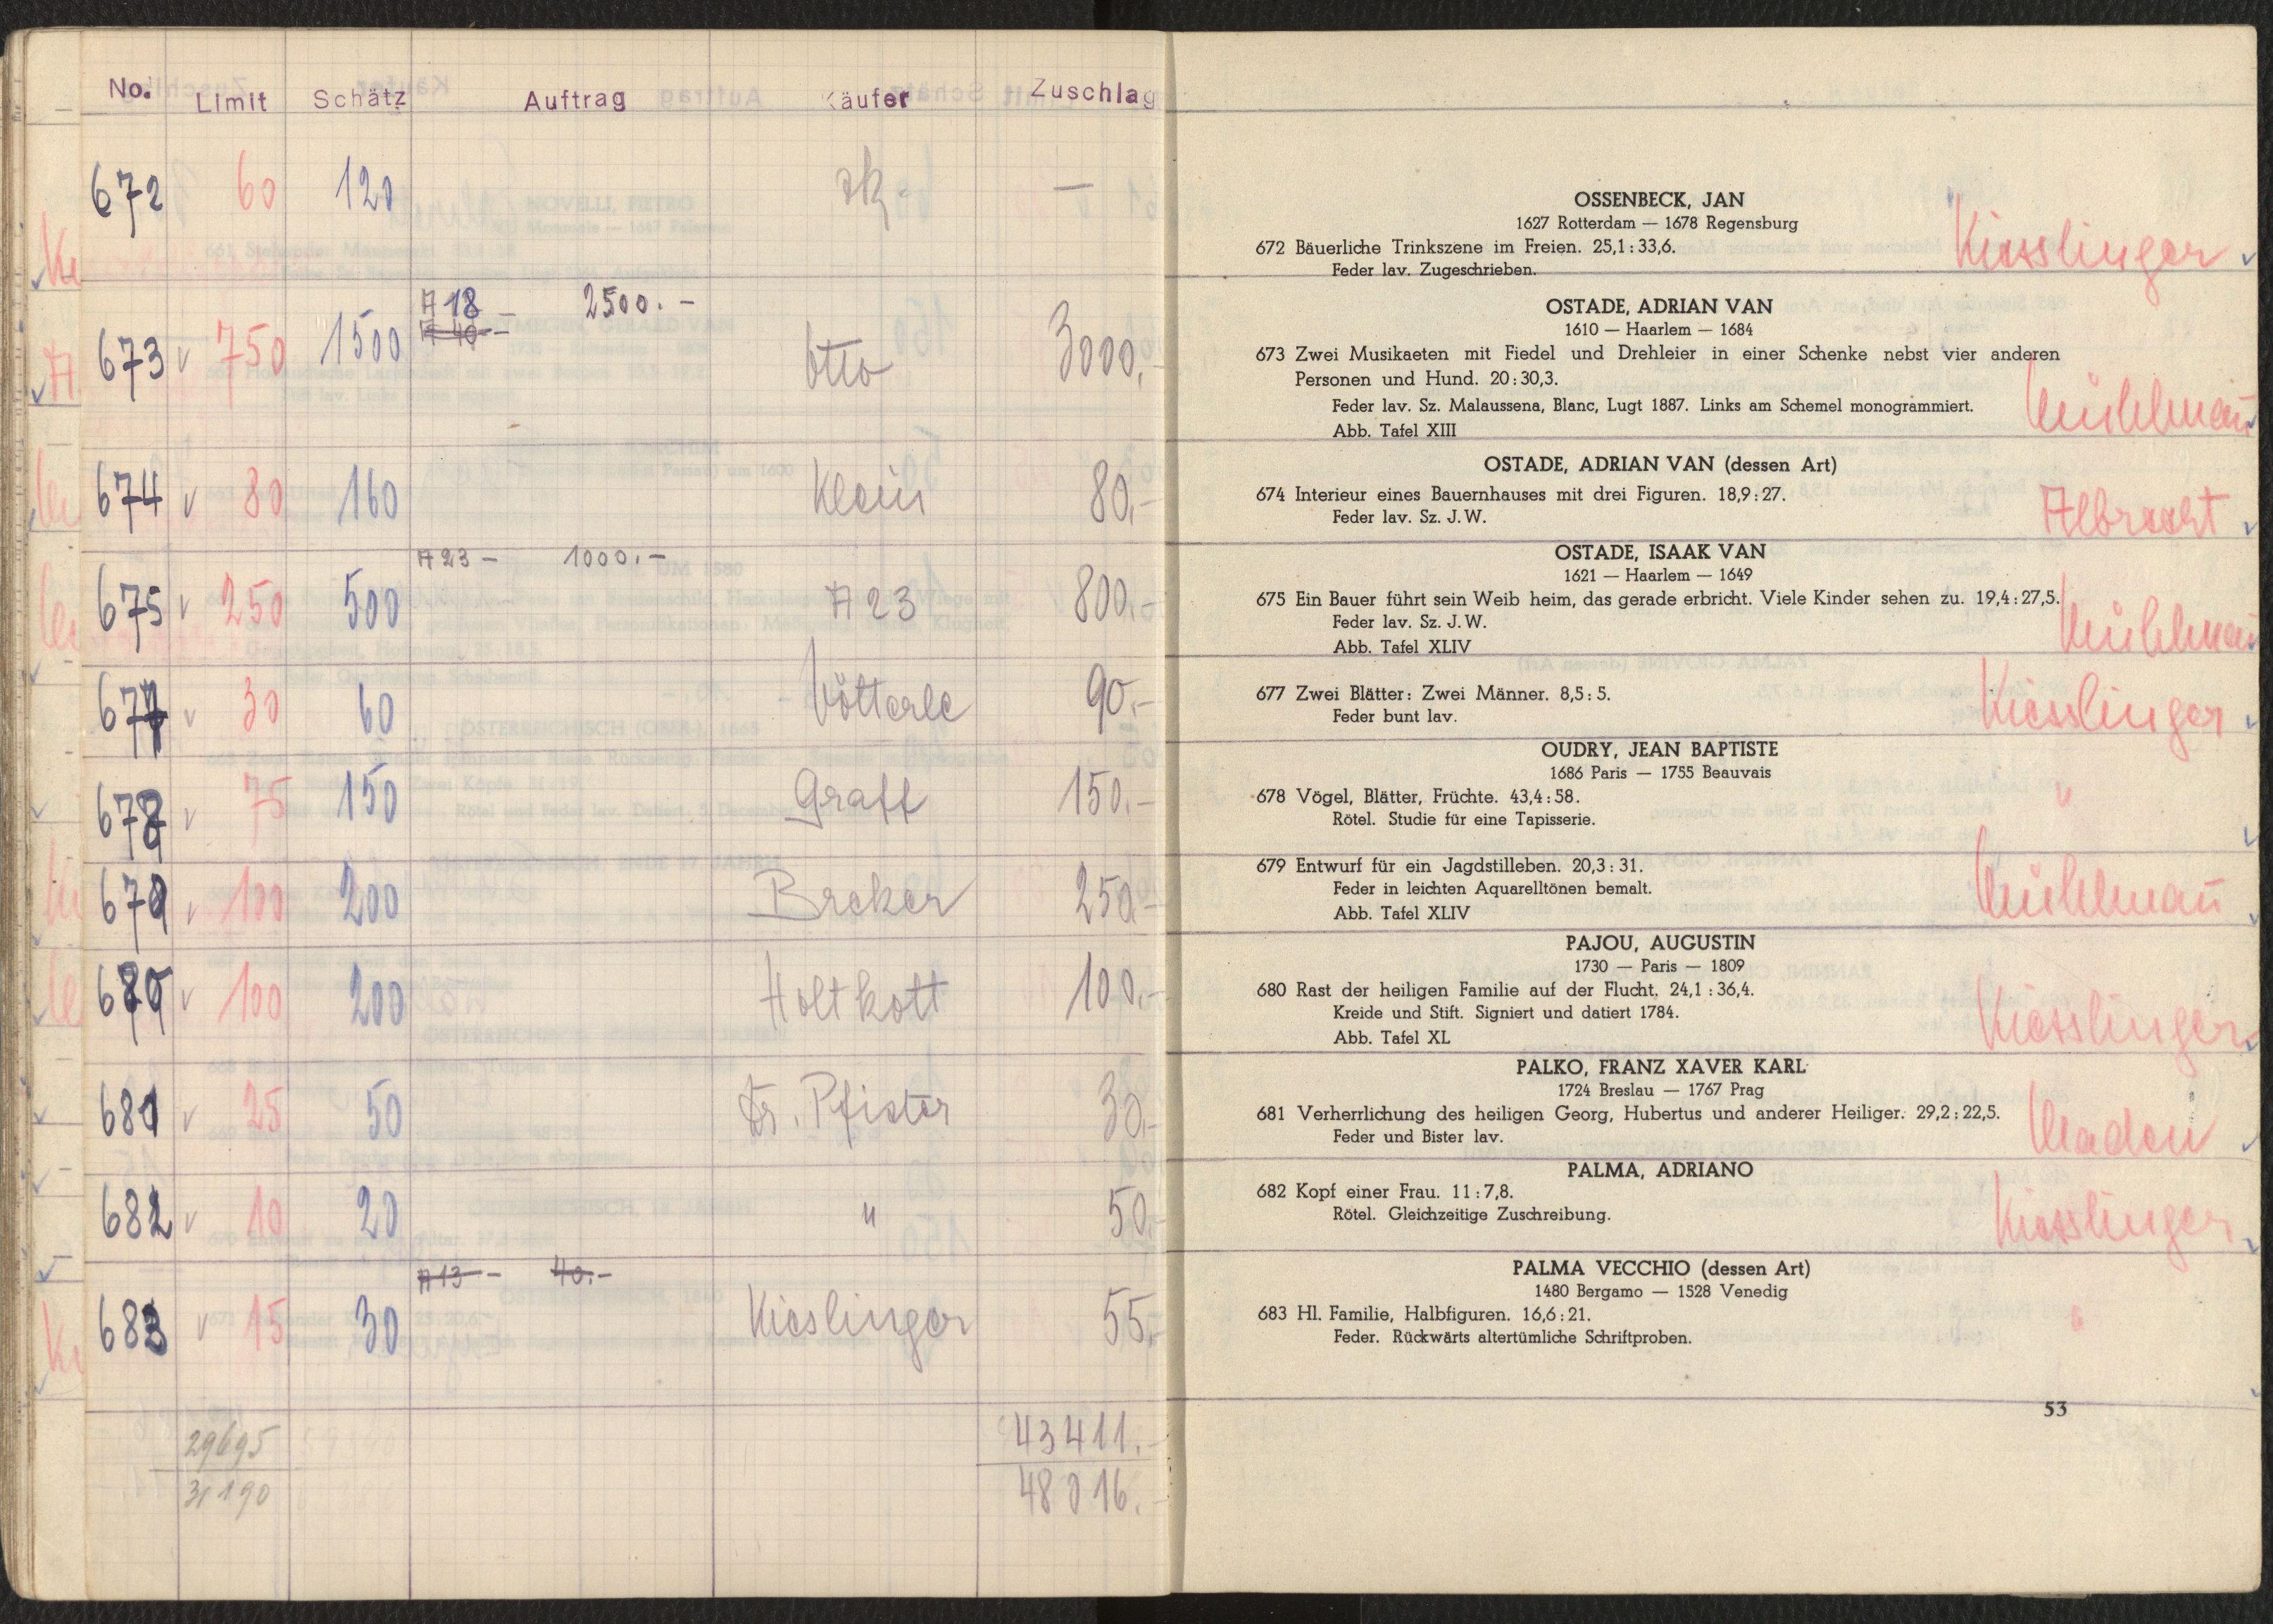 No. Limit Schätz Auftrag Käufer Zuschlag
672 60 120 —
A 18 — 2500.-
A 40 -
673 v 750 1500 Otto 3000.-
674 v 80 160 Klein 80.-
A 23 - 1000.-
675 v 250 500 A 23 800.-
677 v 30 60 Vötterle 90.-
678 v 75 150 Graff 150.-
679 v 100 200 Breker 250.-
680 v 100 200 Holtkott 100.-
681 v 25 50 Dr. Pfister 30.-
682 v 10 20 " 50.-
A 13 - 40.-
683 v 15 30 Kieslinger 55.-
29695 43411.-
31190 48016.-
OSSENBECK, JAN
1627 Rotterdam — 1678 Regensburg
672 Bäuerliche Trinkszene im Freien. 25,1 : 33,6.
Feder lav. Zugeschrieben.
Kiesslinger
OSTADE, ADRIAN VAN
1610 — Haarlem — 1684
673 Zwei Musikaeten mit Fiedel und Drehleier in einer Schenke nebst vier anderen
Personen und Hund. 20 : 30,3.
Feder lav. Sz. Malaussena, Blanc, Lugt 1887. Links am Schemel monogrammiert.
Abb. Tafel XIII
Mühlman̄
OSTADE, ADRIAN VAN (dessen Art)
674 Interieur eines Bauernhauses mit drei Figuren. 18,9 : 27.
Feder lav. Sz. J. W.
Albrecht
OSTADE, ISAAK VAN
1621 — Haarlem — 1649
675 Ein Bauer führt sein Weib heim, das gerade erbricht. Viele Kinder sehen zu. 19,4 : 27,5.
Feder lav. Sz. J. W.
Abb. Tafel XLIV
Mühlman̄
677 Zwei Blätter: Zwei Männer. 8,5 : 5.
Feder bunt lav.
Kiesslinger
OUDRY, JEAN BAPTISTE
1686 Paris — 1755 Beauvais
678 Vögel, Blätter, Früchte. 43,4 : 58.
Rötel. Studie für eine Tapisserie.
"
679 Entwurf für ein Jagdstilleben. 20,3 : 31.
Feder in leichten Aquarelltönen bemalt.
Abb. Tafel XLIV
Mühlman̄
PAJOU, AUGUSTIN
1730 — Paris — 1809
680 Rast der heiligen Familie auf der Flucht. 24,1 : 36,4.
Kreide und Stift. Signiert und datiert 1784.
Abb. Tafel XL
Kiesslinger
PALKO, FRANZ XAVER KARL
1724 Breslau — 1767 Prag
681 Verherrlichung des heiligen Georg, Hubertus und anderer Heiliger. 29,2 : 22,5.
Feder und Bister lav.
PALMA, ADRIANO
682 Kopf einer Frau. 11 : 7,8.
Rötel. Gleichzeitige Zuschreibung.
Kiesslinger
PALMA VECCHIO (dessen Art)
1480 Bergamo — 1528 Venedig
683 Hl. Familie, Halbfiguren. 16,6 : 21.
Feder. Rückwärts altertümliche Schriftproben.
"
53